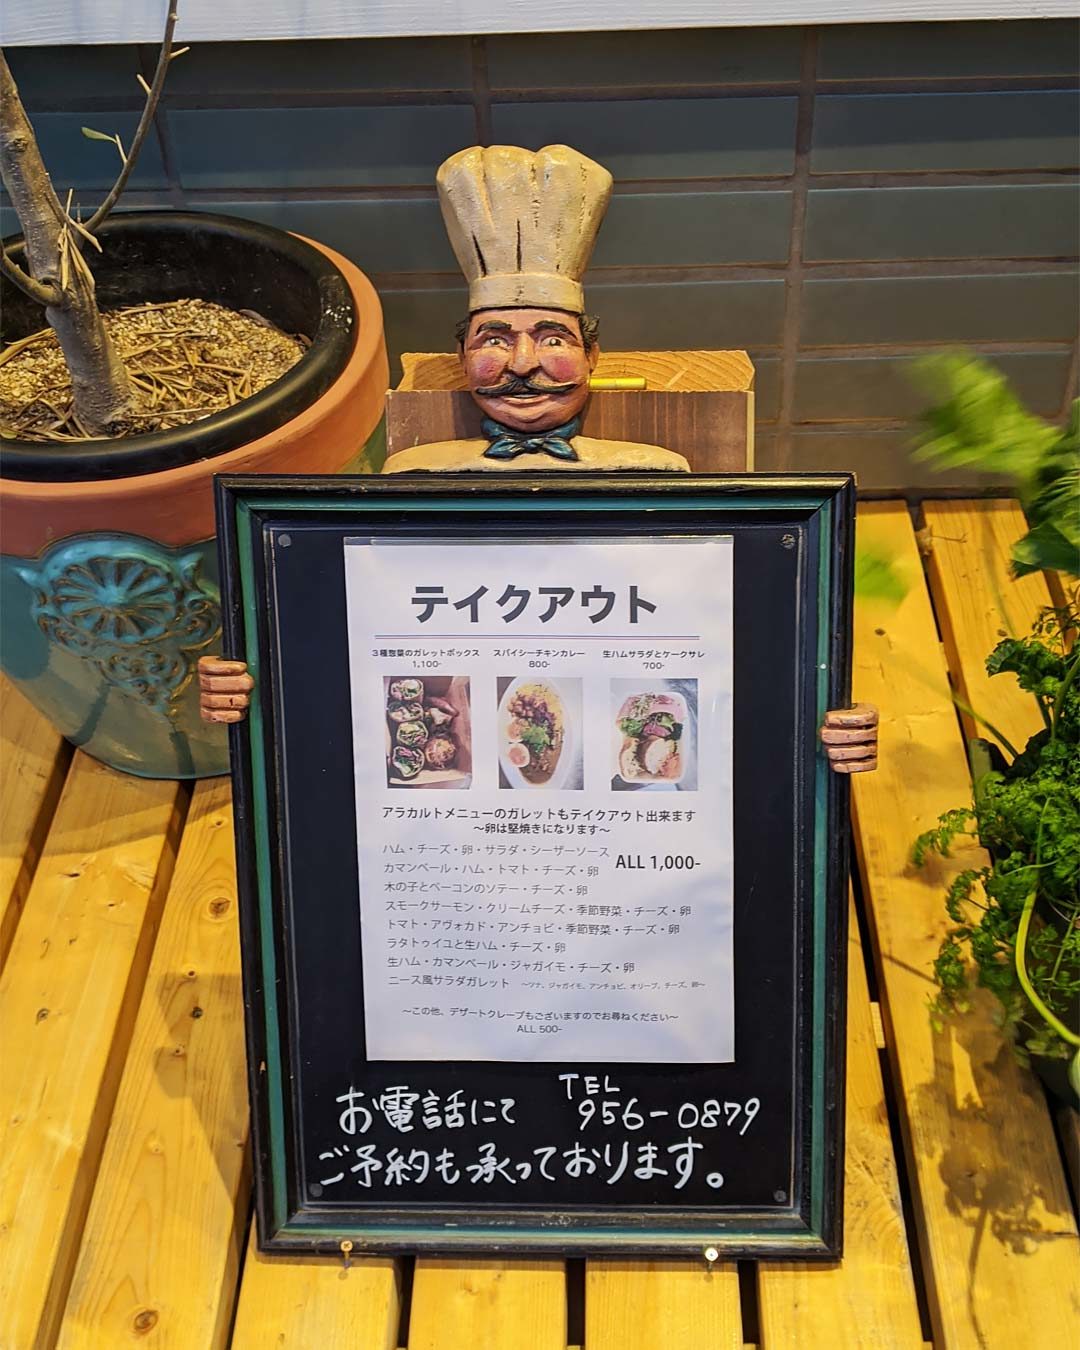 テイクアウト
３種惣菜のガレットボックス
1,100-
スパイシーチキンカレー
800-
生ハムサラダとケークサレ
700-
アラカルトメニューのガレットもテイクアウト出来ます
～卵は堅焼きになります～
ハム・チーズ・卵・サラダ・シーザーソース
カマンベール・ハム・トマト・チーズ・卵
ALL 1,000-
木の子とベーコンのソテー・チーズ・卵
スモークサーモン・クリームチーズ・季節野菜・チーズ・卵
トマト・アヴォカド・アンチョビ・季節野菜・チーズ・卵
ラタトゥイユと生ハム・チーズ・卵
生ハム・カマンベール・ジャガイモ・チーズ・卵
ニース風サラダガレット ～ツナ、ジャガイモ、アンチョビ、オリーブ、チーズ、卵～
～この他、デザートクレープもございますのでお尋ねください～
ALL 500-
お電話にて TEL 956-0879
ご予約も承っております。